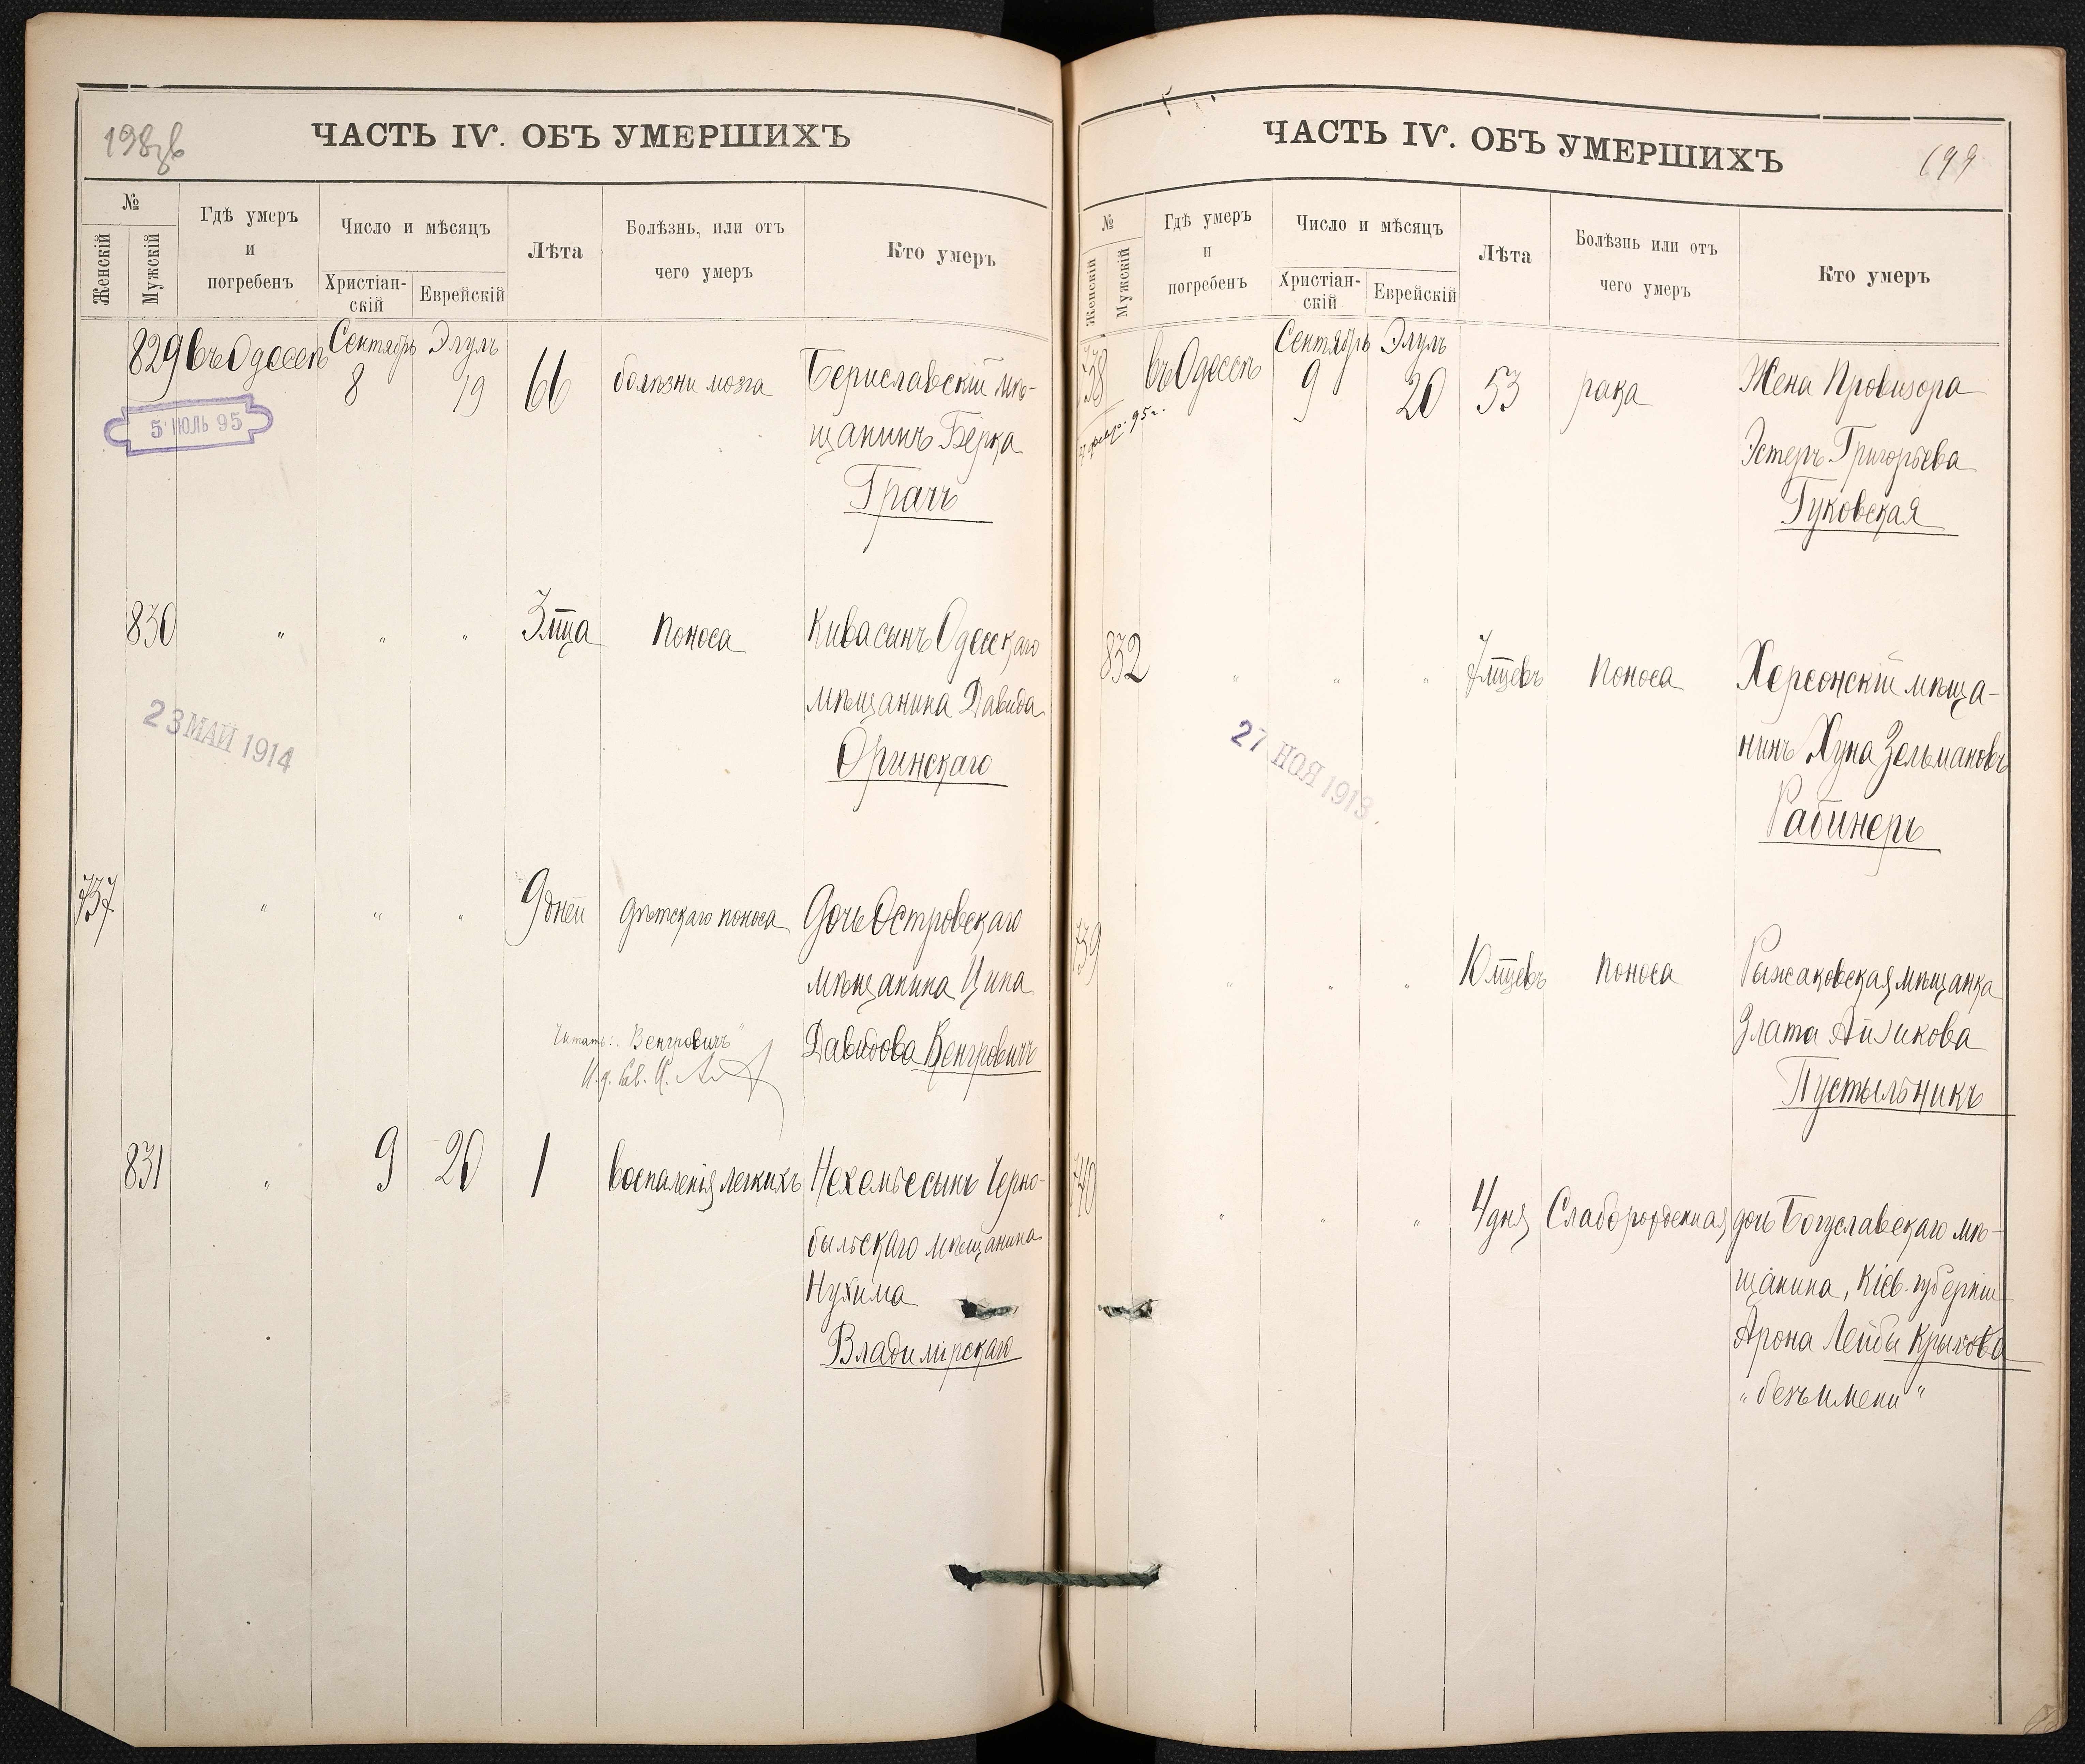 198 об
ЧАСТЬ IV. ОБЪ УМЕРШИХЪ
№
Женскій
Мужскій
Гдѣ умеръ
и
погребенъ
Число и мѣсяцъ
Христіан-
скій
Еврейскій
Лѣта
Болѣзнь, или отъ
чего умеръ
Кто умеръ
829 въ Одессѣ Сентябрь 8 Элулъ 19 66 болѣзни мозга Бериславскій мѣ-
щанинъ Берка
Грачъ
5 ІЮЛЬ 95
830 " " " 3 мца поноса Кива сынъ Одесскаго
мѣщанина Давида
Оринскаго
23 МАЙ 1914
737 " " " 9 дней дѣтскаго поноса Дочь Островскаго
мѣщанина Ципа
Давидова Венгровичъ
Читать: "Венгровичъ"
831 " 9 20 1 воспаленія легкихъ Нехемье сынъ Черно-
быльскаго мѣщанина
Нухима
Владимірскаго
199
ЧАСТЬ IV. ОБЪ УМЕРШИХЪ
№
Женскій
Мужскій
Гдѣ умеръ
и
погребенъ
Число и мѣсяцъ
Христіан-
скій
Еврейскій
Лѣта
Болѣзнь или отъ
чего умеръ
Кто умеръ
738 въ Одессѣ Сентябрь 9 Элулъ 20 53 рака Жена Провизора
Эстеръ Григорьева
Гуковская
февр. 95 г.
832 " " " 7 мцевъ поноса Херсонскій мѣща-
нинъ Хуна Зельмановъ
Рабинеръ
27 НОЯ 1913.
739 " " " 10 мцевъ поноса Рыжаковская мѣщанка
Злата Айзикова
Пустыльникъ
740 " " " 4 дня Слаборожденная дочь Богуславскаго мѣ-
щанина, Кіев. губерніи
Арона Лейбы
"безъ имени"